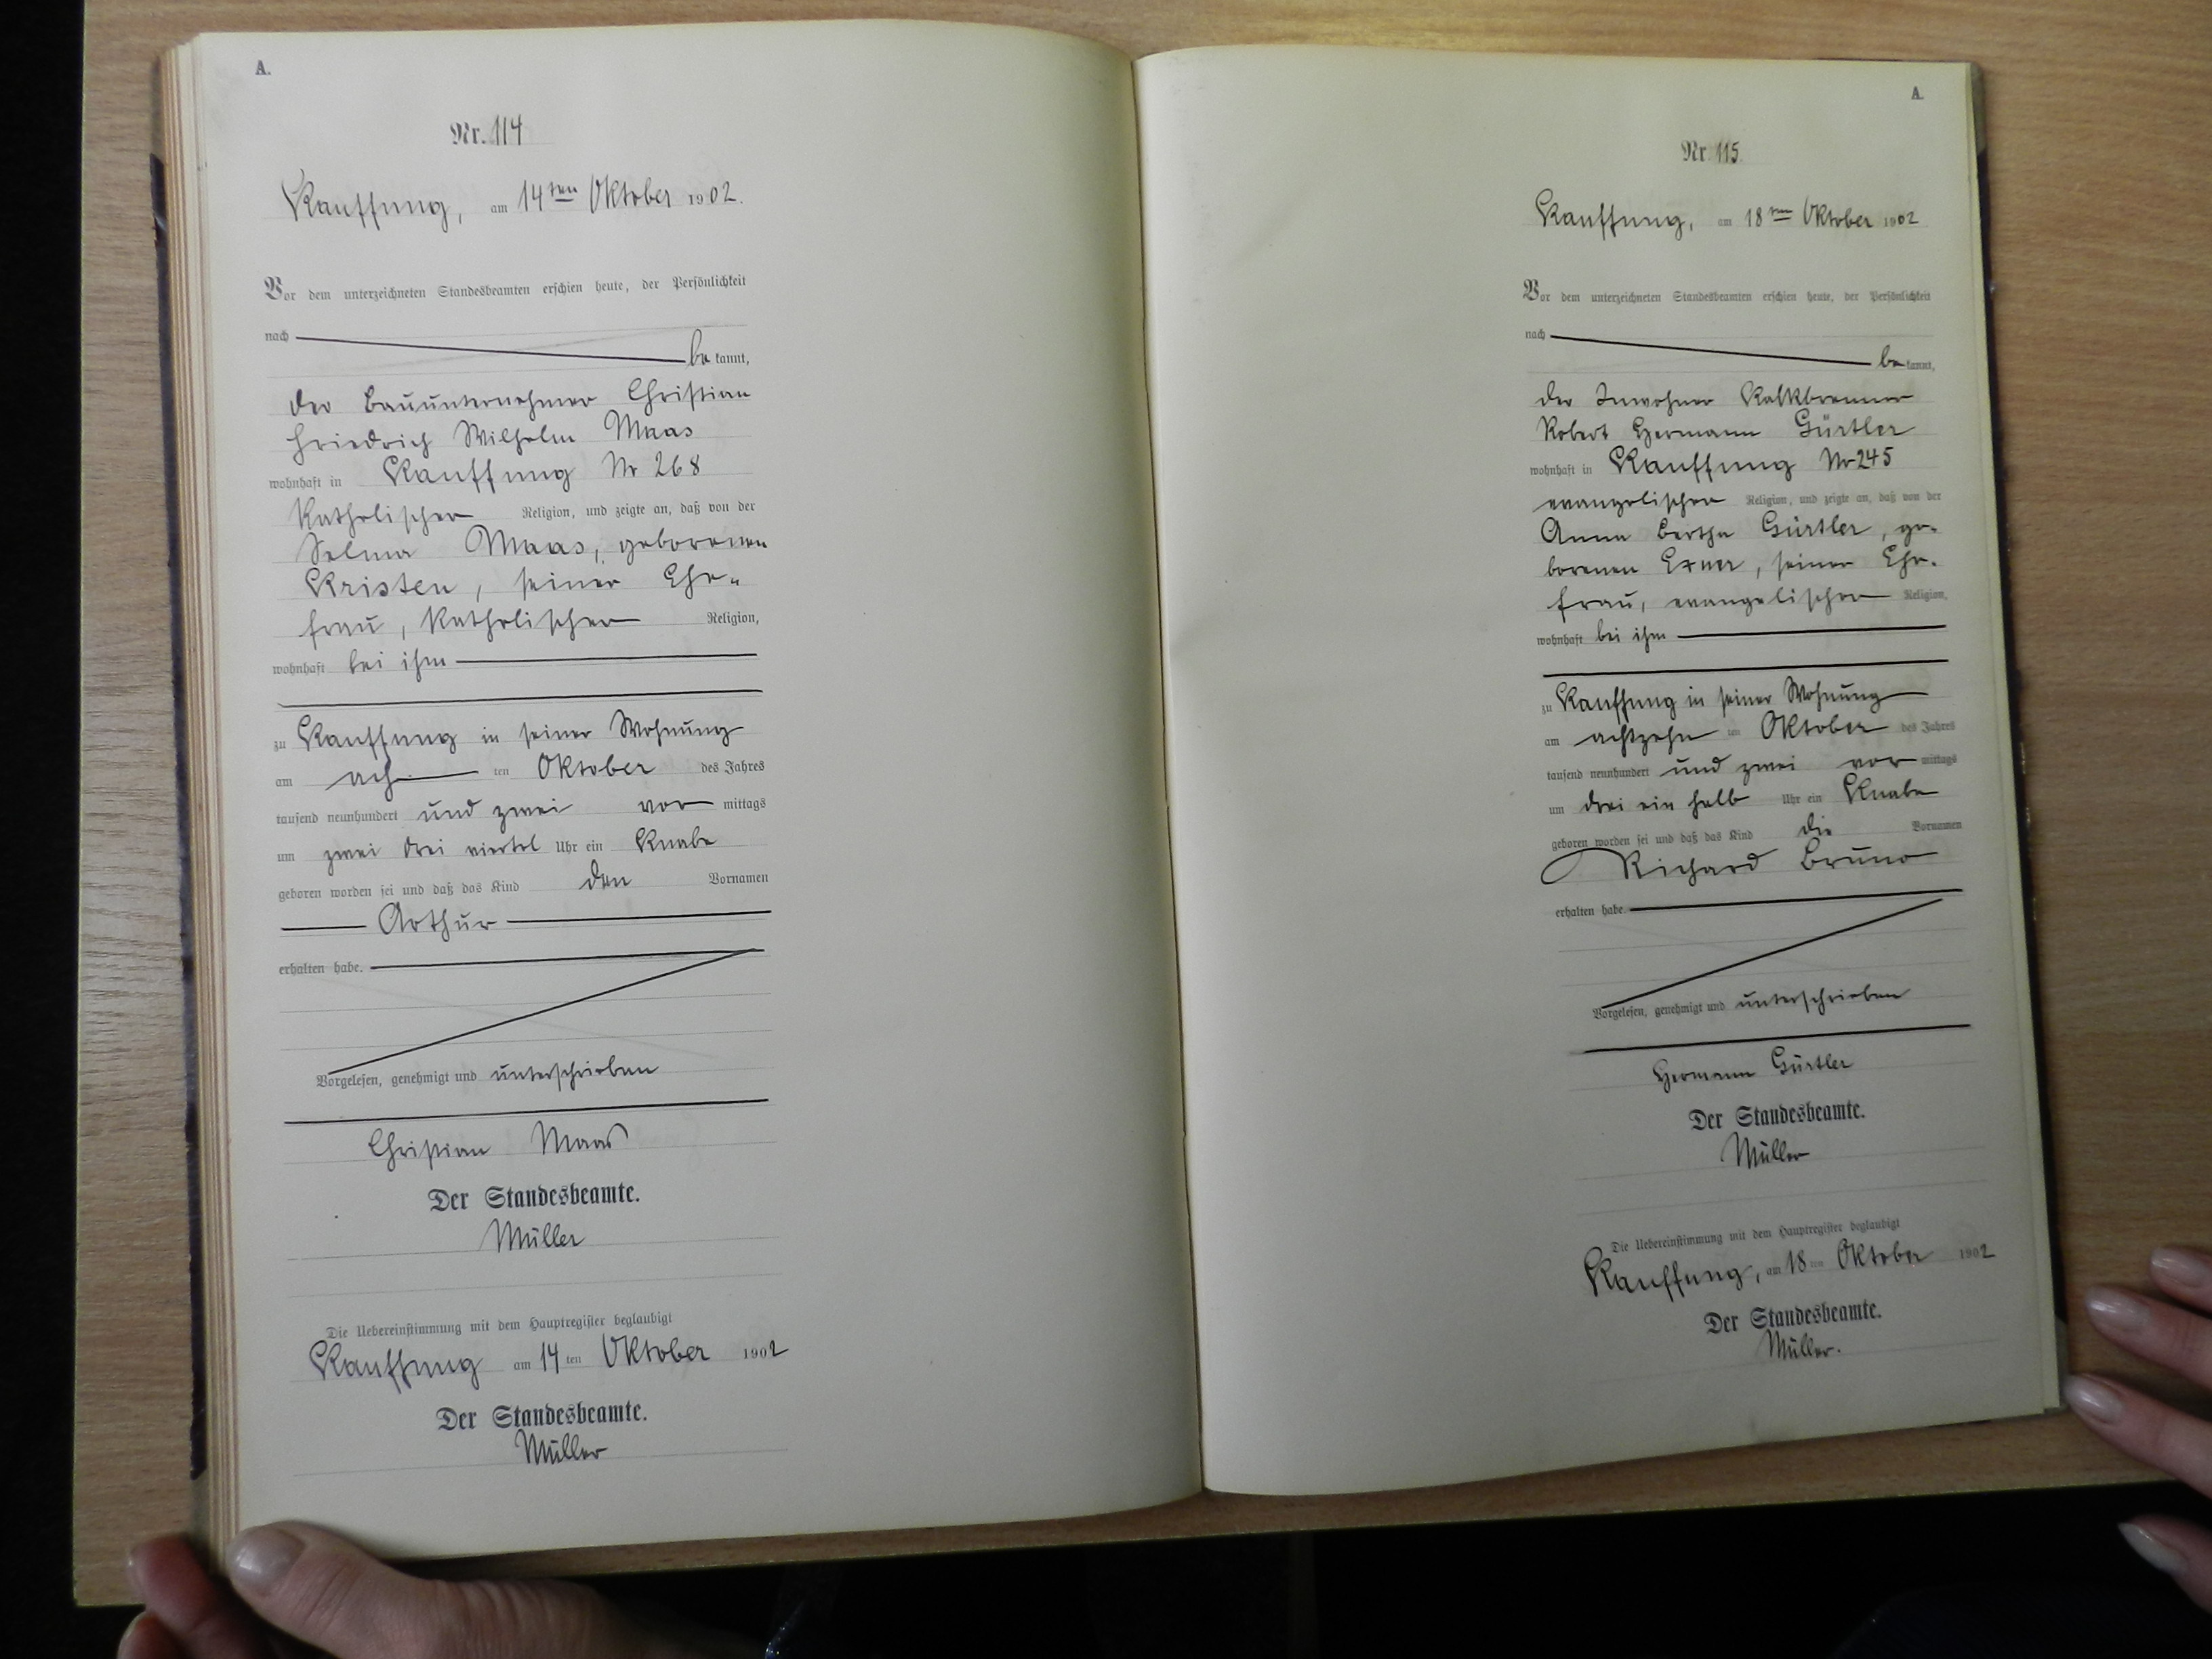 A.
Nr. 114
Kauffung, am 14ten Oktober 1902.
Vor dem unterzeichneten Standesbeamten erschien heute, der Persönlichkeit
nach
be kannt,
der Bauunternehmer Christian
Friedrich Wilhelm Maas
wohnhaft in Kauffung Nr 268
katholischer Religion, und zeigte an, daß von der
Selma Maas, geborenen
Kristen, seiner Ehe-
frau, katholischer Religion,
wohnhaft bei ihm
zu Kauffung in seiner Wohnung
am ach ten Oktober des Jahres
tausend neunhundert und zwei vor mittags
um zwei drei viertel Uhr ein Knabe
geboren worden sei und daß das Kind den Vornamen
Arthur
erhalten habe.
Vorgelesen, genehmigt und unterschrieben
Christian Maas
Der Standesbeamte.
Müller
Die Uebereinstimmung mit dem Hauptregister beglaubigt
Kauffung am 14 ten Oktober 1902
Der Standesbeamte.
Müller
A.
Nr. 115
Kauffung, am 18ten Oktober 1902
Vor dem unterzeichneten Standesbeamten erschien heute, der Persönlichkeit
nach
be kannt,
der Inwohner Kalkbrenner
Robert Hermann Gürtler
wohnhaft in Kauffung Nr 245
evangelischer Religion, und zeigte an, daß von der
Anna Bertha Gürtler, ge-
borenen Exner, seiner Ehe-
frau, evangelischer Religion,
wohnhaft bei ihm
zu Kauffung in seiner Wohnung
am achtzehn ten Oktober des Jahres
tausend neunhundert und zwei vor mittags
um drei ein halb Uhr ein Knabe
geboren worden sei und daß das Kind die Vornamen
Richard Bruno
erhalten habe.
Vorgelesen, genehmigt und unterschrieben
Hermann Gürtler
Der Standesbeamte.
Müller
Die Uebereinstimmung mit dem Hauptregister beglaubigt
Kauffung, am 18 ten Oktober 1902
Der Standesbeamte.
Müller.